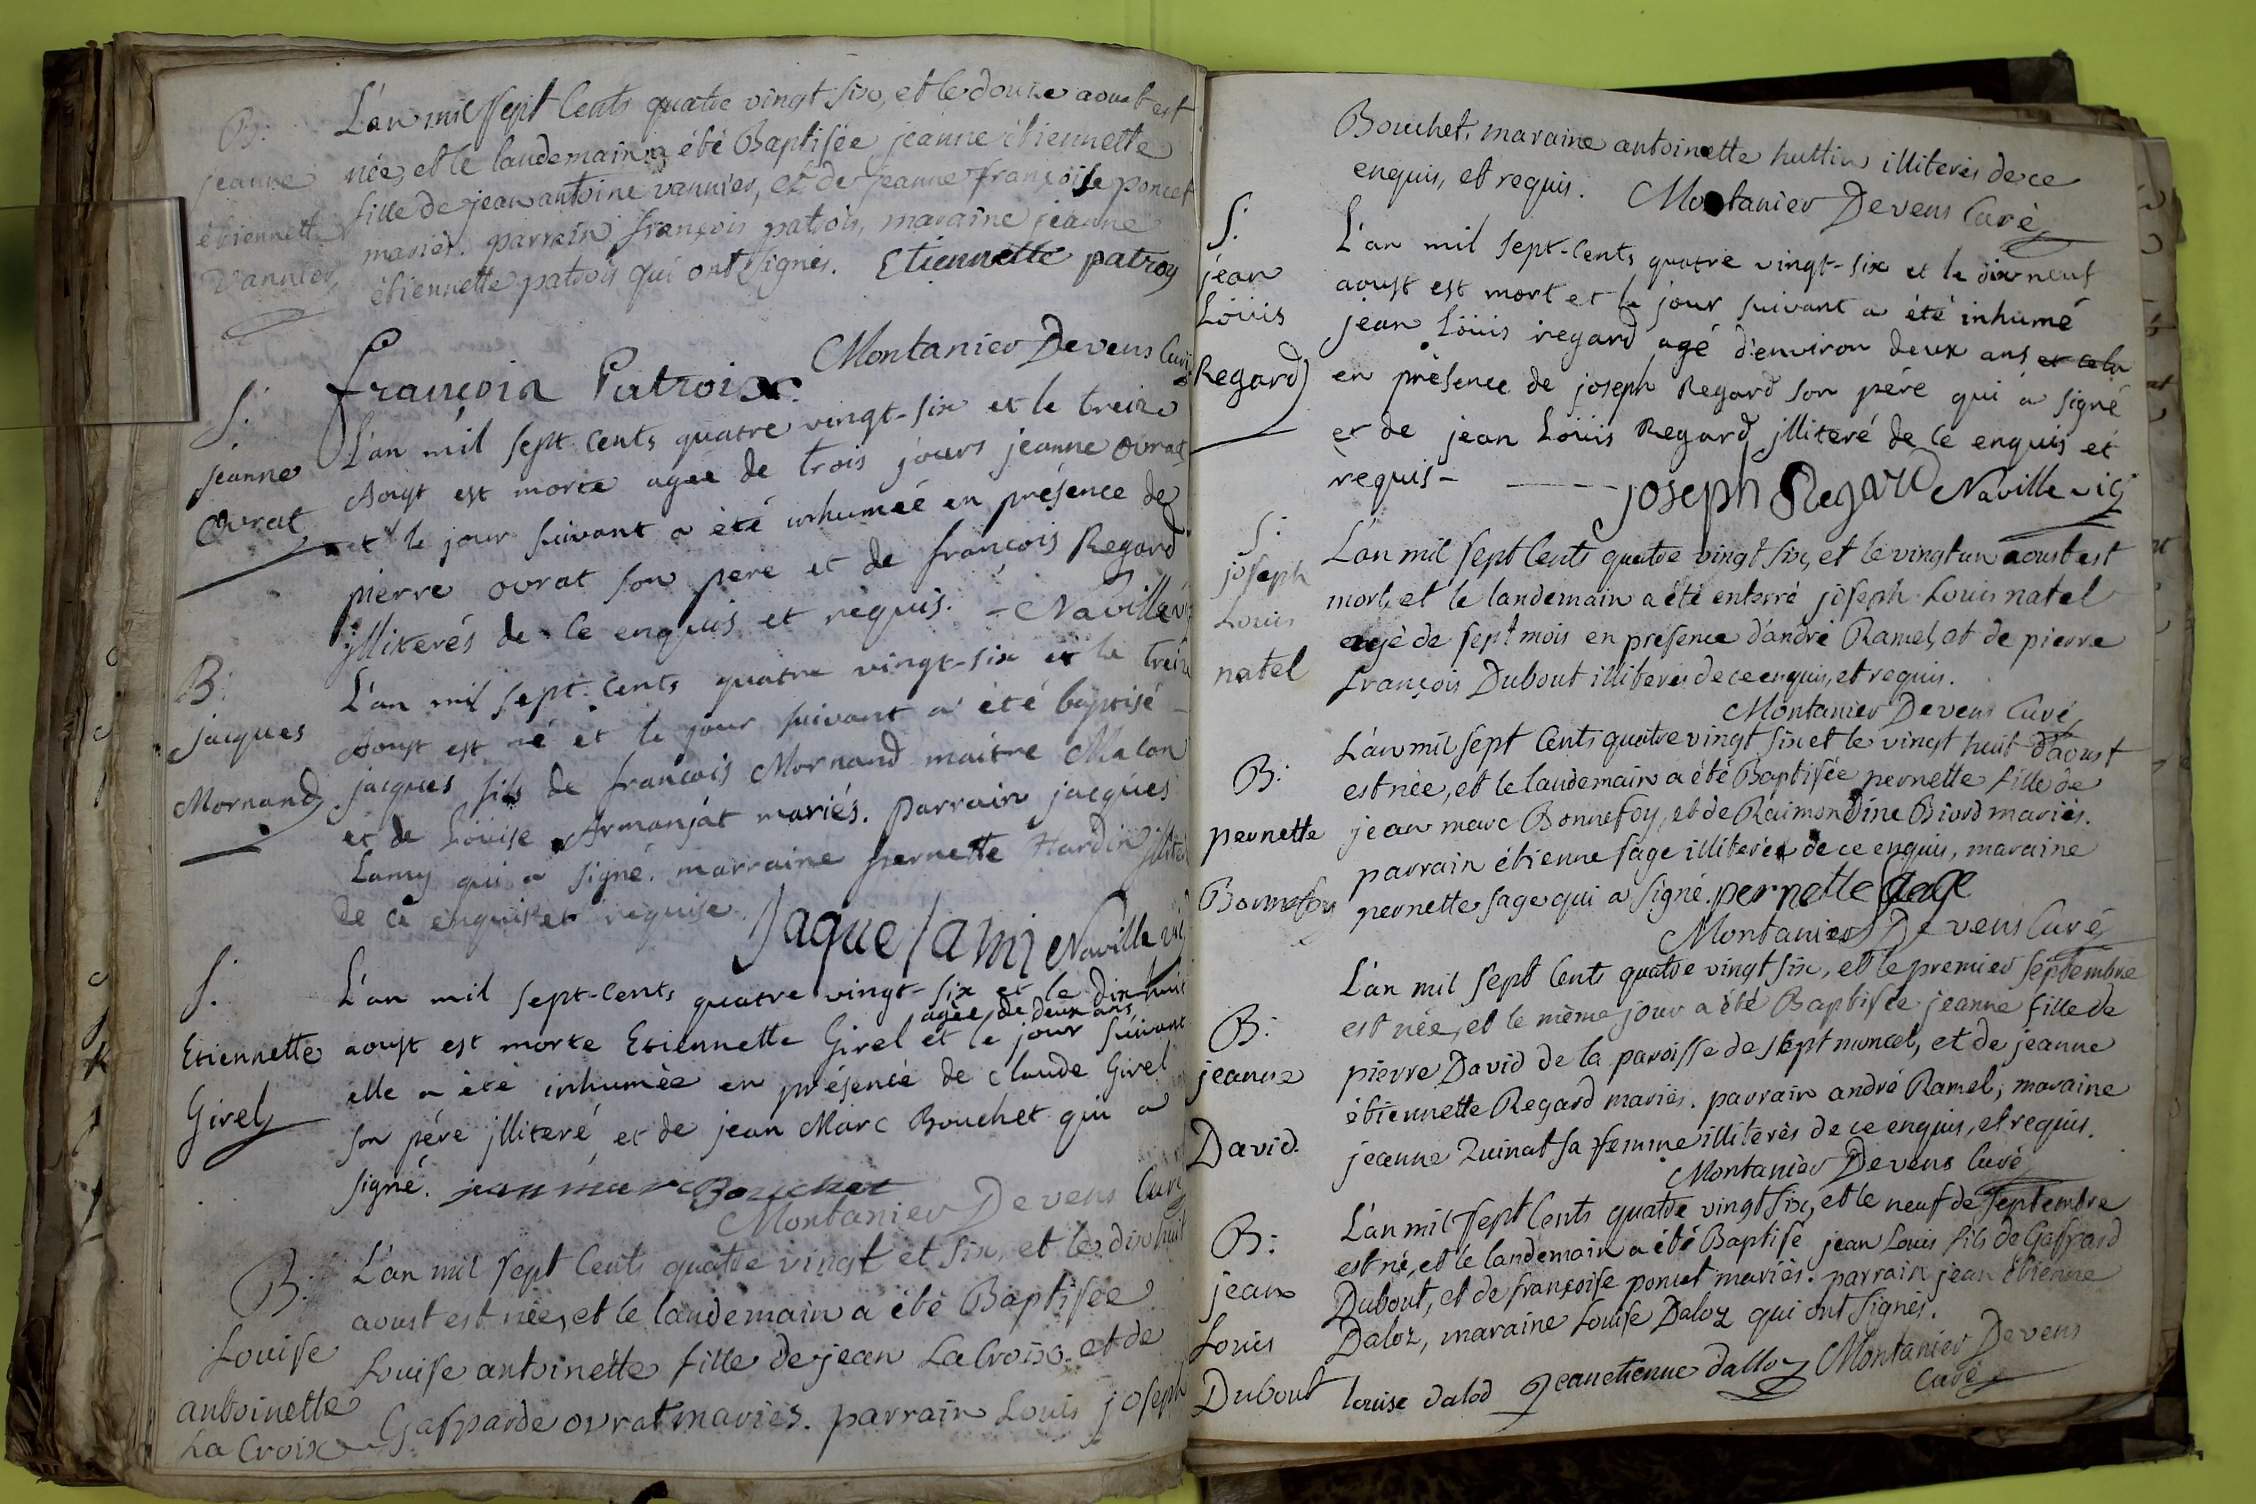 B:
jeanne
étiennette
Vannier
L'an mil sept Cents quatre vingt six, et le douze aoust est
née, et le landemain a été Baptisée jeanne étiennette
fille de jean antoine vannier, et de jeanne françoise poncet
mariés. parrain françois patrois, maraine jeanne
étiennette patrois qui ont signés. Etiennette patroy
Montanier Devens Curé
françoin Patroix
S.
jeanne
Ovrat
L'an mil sept Cents quatre vingt-six et le treize
Aoust est morte agée de trois jours jeanne ovrat
et le jour suivant a été inhumée en présence de
pierre ovrat son pere et de françois Regard
jlliterés de ce enquis et requis. - Naville
B:
jacques
Mornand
L'an mil sept-Cents quatre vingt-six et le treize
Aoust est né et le jour suivant a été baptisé
jacques fils de françois Mornand maitre Malon
et de Loüise Armanjat mariés. parrain jacques
Lamy qui a signé. marraine pernette Hardin jlliterée
de ce enquise et requise.
Jaque lami Naville vic
S.
Etiennette
Girel
L'an mil sept-Cents quatre vingt-six et le dix huit
agée de deux ans
aoust est morte Etiennette Girel et le jour suivant
elle a été inhumée en présence de Claude Girel
son pére jlliteré, et de jean Marc Bouchet qui a
signé. jean marc Bouchet
Montanier Devens Curé
B:
Louise
antoinette
La Croix
L'an mil sept Cents quatre vingt et six, et le dix huit
aoust est née, et le landemain a été Baptisée
Louise antoinette fille de jean La Croix, et de
Gasparde ovrat mariés. parrain Louis joseph
Bouchet, maraine antoinette huttin illiterés de ce
enquis, et requis. Montanier Devens Curé
S.
jean
Loüis
Regard
L'an mil sept-Cents quatre vingt-six et le dix neuf
aoust est mort et le jour suivant a été inhumé
jean Loüis regard agé d'environ deux ans et cela
en présence de joseph Regard son pére qui a signé
et de jean Loüis Regard jlliteré de ce enquis et
requis -
joseph Regard Naville vic
S:
joseph
Louis
natel
L'an mil sept Cents quatre vingt six, et le vingt un aoust est
mort, et le landemain a été enterré joseph Louis natel
agé de sept mois en presence d'andré Ramel, et de pierre
François Dubout illiterés de ce enquis, et requis.
Montanier Devens Curé
B:
pernette
Bonnefoy
L'an mil sept Cents quatre vingt six et le vingt huit d'aoust
est née, et le landemain a été Baptisée pernette fille de
jean marc Bonnefoy, et de Raimondine Biord mariés.
parrain étienne sage illiteré de ce enquis, maraine
pernette sage qui a signé. pernette sage
Montanier Devens Curé
B:
jeanne
David.
L'an mil sept Cents quatre vingt six, et le premier septembre
est née, et le même jour a été Baptisée jeanne fille de
pierre David de la paroisse de sept moncel, et de jeanne
étiennette Regard mariés. parrain andré Ramel, maraine
jeanne Zuinat sa femme illiterés de ce enquis, et requis.
Montanier Devens Curé
B:
jean
Louis
Dubout
L'an mil sept Cents quatre vingt six, et le neuf de septembre
est né, et le landemain a été Baptisé jean Louis fils de Gaspard
Dubout, et de françoise poncet mariés. parrain jean étienne
Daloz, maraine Louise Daloz qui ont signés.
louise dalod jean etienne dalloz Montanier Devens
Curé